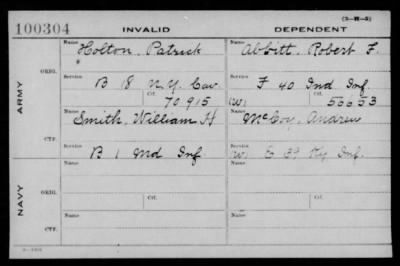 (3-H-3)
100304 INVALID DEPENDENT
Name Name
Holton, Patrick Abbitt, Robert F.
ORIG. Service Service
B 18 N.Y. Cav. F 40 Ind Inf.
Ctf. Ctf.
70915 (W) 55653
ARMY
Name Name
Smith, William H McCoy, Andrew
CTF. Service Service
B 1 Md Inf. (W) E 39 Ky Inf.
Name Name
ORIG. Service Service
Ctf. Ctf.
NAVY
Name Name
CTF. Service Service